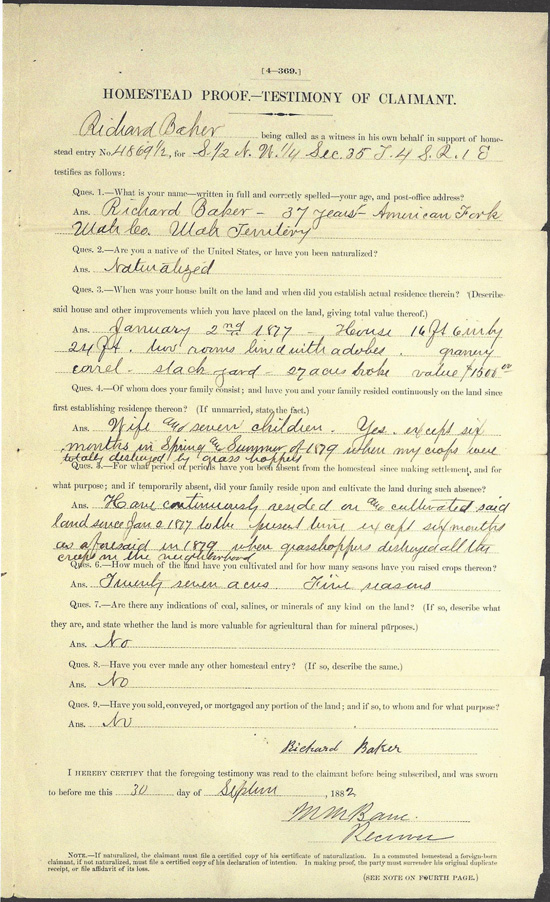 [4—369.]
HOMESTEAD PROOF.—TESTIMONY OF CLAIMANT.
Richard Baker being called as a witness in his own behalf in support of home-
stead entry No. 4869½, for S.1/2 N.W.1/4 Sec. 35 T. 4 S. R. 1 E
testifies as follows:
Ques. 1.—What is your name—written in full and correctly spelled—your age, and post-office address?
Ans. Richard Baker – 37 years – American Fork
Utah Co. Utah Territory
Ques. 2.—Are you a native of the United States, or have you been naturalized?
Ans. Naturalized
Ques. 3.—When was your house built on the land and when did you establish actual residence therein? (Describe
said house and other improvements which you have placed on the land, giving total value thereof.)
Ans. January 2nd 1877 – House 16 ft by
24 ft. two rooms lined with adobes. granery
correl – stack yard – 27 acres broke value $1500 00
Ques. 4.—Of whom does your family consist; and have you and your family resided continuously on the land since
first establishing residence thereon? (If unmarried, state the fact.)
Ans. Wife and seven children. Yes. except six
months in Spring and Summer of 1879 when my crops were
totally destroyed by grasshoppers
Ques. 5.—For what period or periods have you been absent from the homestead since making settlement, and for
what purpose; and if temporarily absent, did your family reside upon and cultivate the land during such absence?
Ans. Have continuously resided on and cultivated said
land since Jan 2 1877 to the present time except six months
as aforesaid in 1879 when grasshoppers destroyed all the
crops in the neighborhood
Ques. 6.—How much of the land have you cultivated and for how many seasons have you raised crops thereon?
Ans. Twenty seven acres Five seasons
Ques. 7.—Are there any indications of coal, salines, or minerals of any kind on the land? (If so, describe what
they are, and state whether the land is more valuable for agricultural than for mineral purposes.)
Ans. No
Ques. 8.—Have you ever made any other homestead entry? (If so, describe the same.)
Ans. No
Ques. 9.—Have you sold, conveyed, or mortgaged any portion of the land; and if so, to whom and for what purpose?
Ans. No
Richard Baker
I HEREBY CERTIFY that the foregoing testimony was read to the claimant before being subscribed, and was sworn
to before me this 30 day of Septem , 1882
M M Bane
Receiver
NOTE.—If naturalized, the claimant must file a certified copy of his certificate of naturalization. In a commuted homestead a foreign-born
claimant, if not naturalized, must file a certified copy of his declaration of intention. In making proof, the party must surrender his original duplicate
receipt, or file affidavit of its loss.
(SEE NOTE ON FOURTH PAGE.)